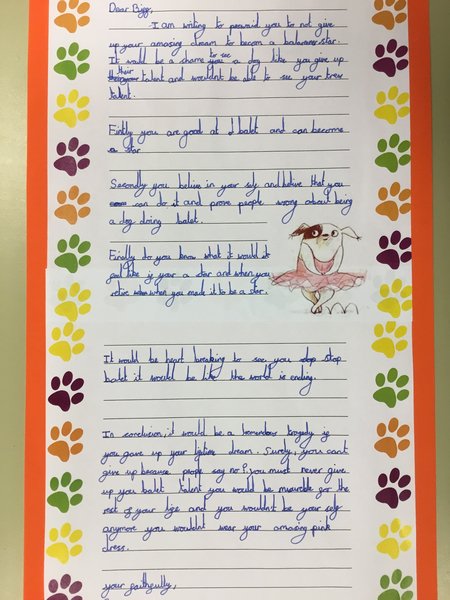 Dear Biff,
I am writing to perswaid you to not give
up your amasing dream to becom a balarener star.
It would be a shame to see you a dog like you give up
their talent and wouldn't be able to see your trew
talent.
Firstly you are good at balet and can become
a star
Secondly you belive in your self and belive that you
can do it and prove people wrong about being
a dog doing balet.
Finally do you know what it would it
feel like if your a star and when you
retire when you made it to be a star.
It would be heart breaking to see you stop
balet it would be like the world is ending.
In conclusion, it would be a tremendous tragedy if
you gave up your lifetime dream. Surely, you cant
give up because people say no? you must never give
up you balet talent you would be misurible for the
rest of your life and you wouldn't be your self
anymore you wouldnt wear your amasing pink
dress.
your faithfully,